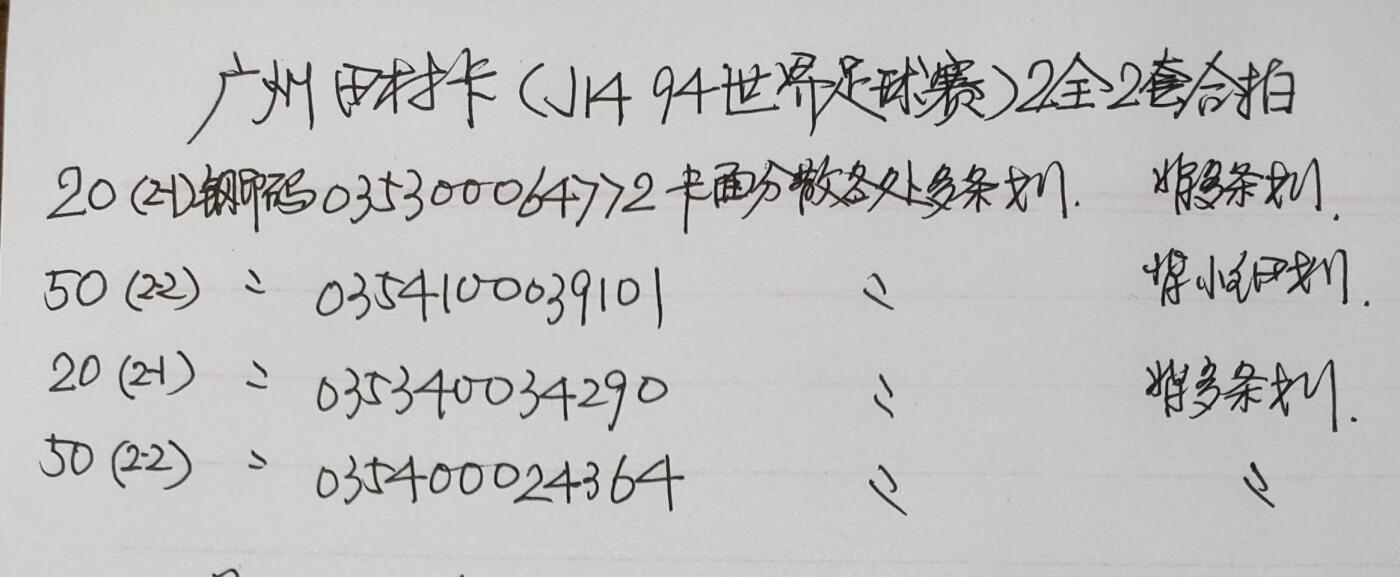 广州田村卡(J14 94世界足球赛)2全2套合拍
20(2-1)钢印码035300064772卡面分散各处多条划. 背多条划.
50(2-2) 〃 0354100039101 〃 背小红印划.
20(2-1) 〃 035340034290 〃 背多条划.
50(2-2) 〃 035400024364 〃 〃